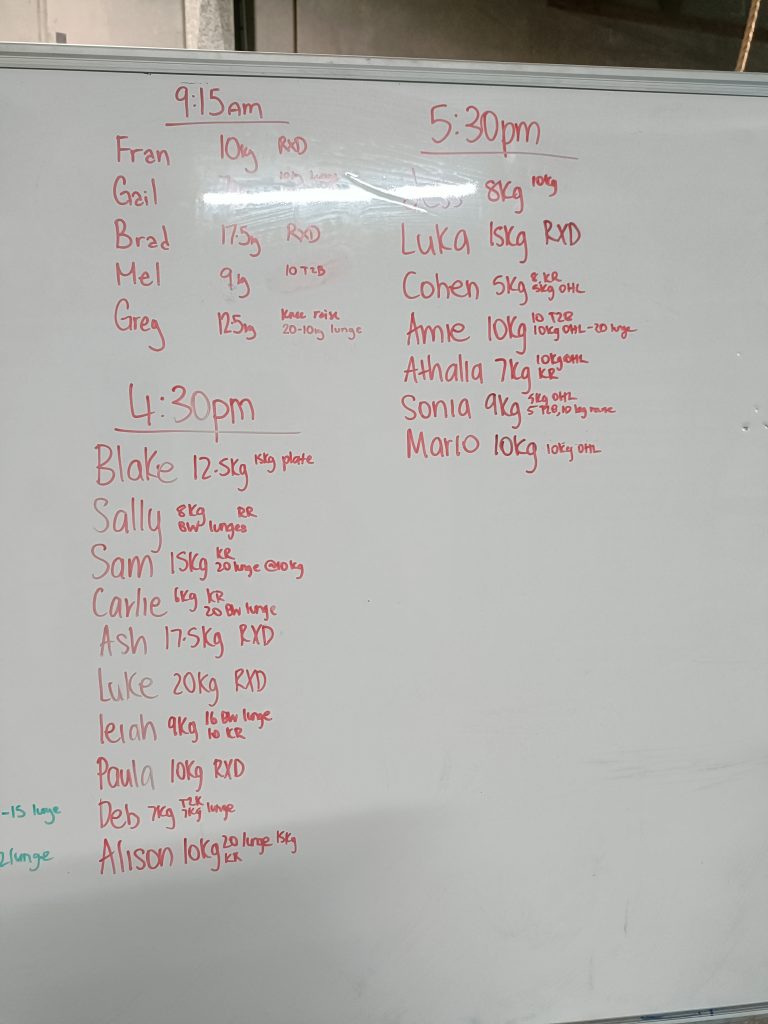 9:15am
Fran 10kg RXD
Gail 10kg lunge
Brad 17.5kg RXD
Mel 9kg 10 T2B
Greg 12.5kg Knee raise
20-10kg lunge
4:30pm
Blake 12.5kg 15kg plate
Sally 8kg RR
BW lunges
Sam 15kg KR
20 lunge @10kg
Carlie 6kg KR
20 BW lunge
Ash 17.5kg RXD
Luke 20kg RXD
Ieiah 9kg 16 BW lunge
10 KR
Paula 10kg RXD
-15 lunge
Deb 7kg T2K
7kg lunge
2 lunge
Alison 10kg 20 lunge 15kg
KR
5:30pm
8kg 10kg
Luka 15kg RXD
Cohen 5kg 8 KR
5kg OHL
Amie 10kg 10 T2B
10kg OHL-20 lunge
Athalia 7kg 10kg OHL
KR
Sonia 9kg 5kg OHL
5 T2B, 10 leg raise
Mario 10kg 10kg OHL